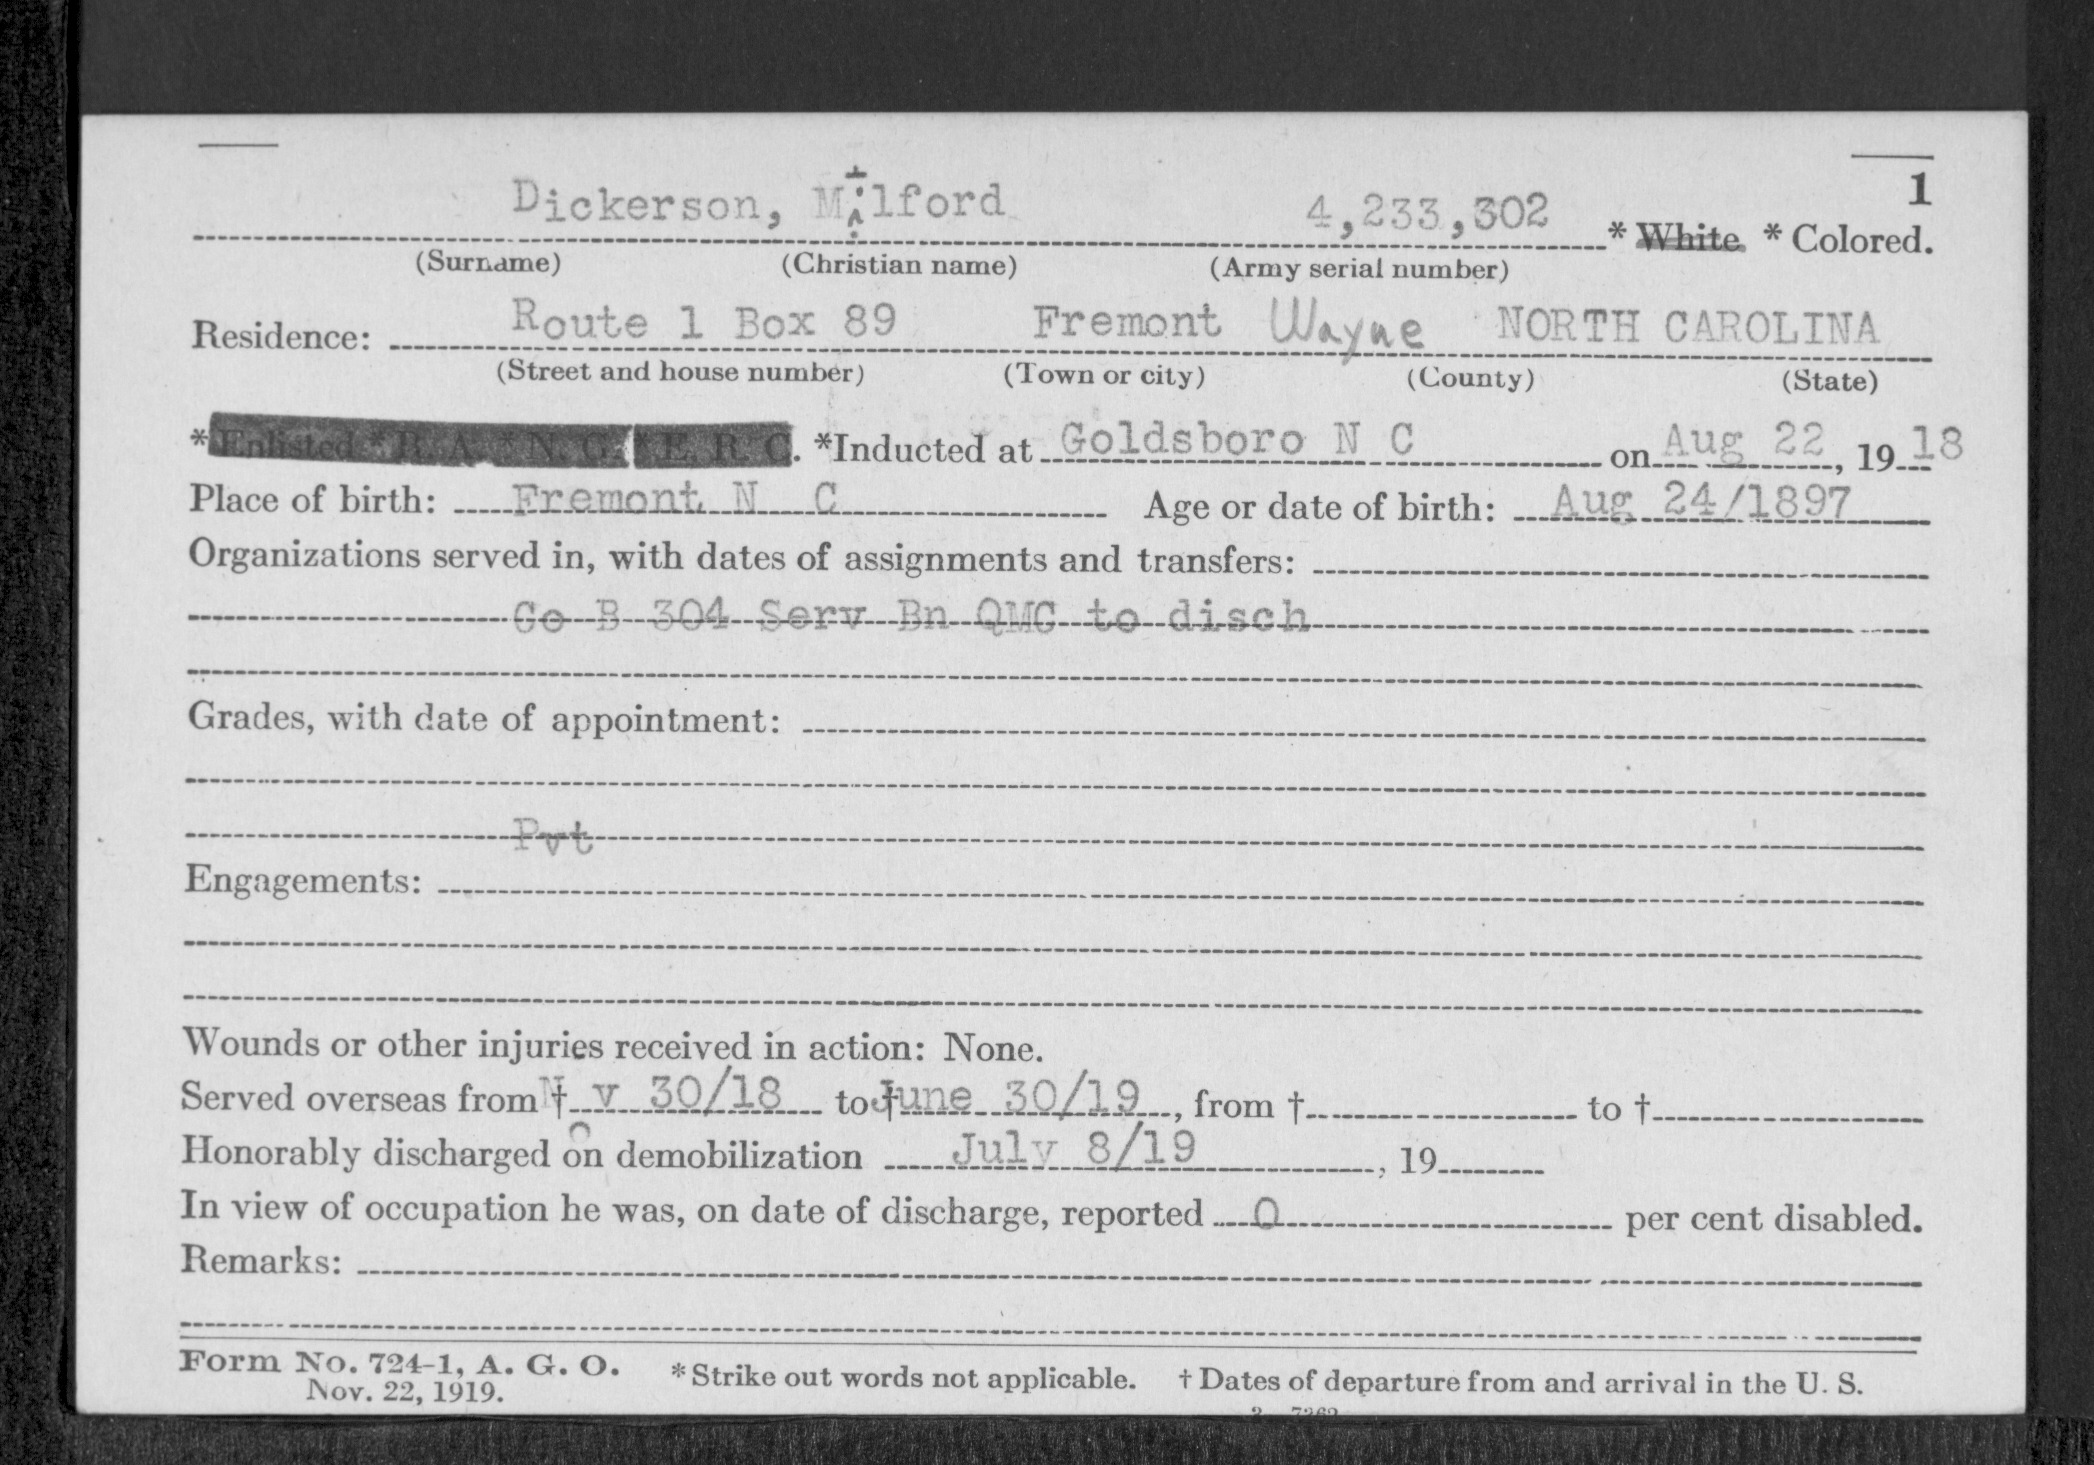 1
Dickerson, Milford 4,233,302 * White * Colored.
(Surname) (Christian name) (Army serial number)
Residence: Route 1 Box 89 Fremont Wayne NORTH CAROLINA
(Street and house number) (Town or city) (County) (State)
* Enlisted * R. A. * N. G. * E. R. C. *Inducted at Goldsboro N C on Aug 22, 19 18
Place of birth: Fremont N C Age or date of birth: Aug 24/1897
Organizations served in, with dates of assignments and transfers:
Co B 304 Serv Bn QMC to disch
Grades, with date of appointment:
Pvt
Engagements:
Wounds or other injuries received in action: None.
Served overseas from † Nov 30/18 to † June 30/19, from † to †
Honorably discharged on demobilization July 8/19, 19
In view of occupation he was, on date of discharge, reported 0 per cent disabled.
Remarks:
Form No. 724-1, A. G. O. * Strike out words not applicable. † Dates of departure from and arrival in the U. S.
Nov. 22, 1919.